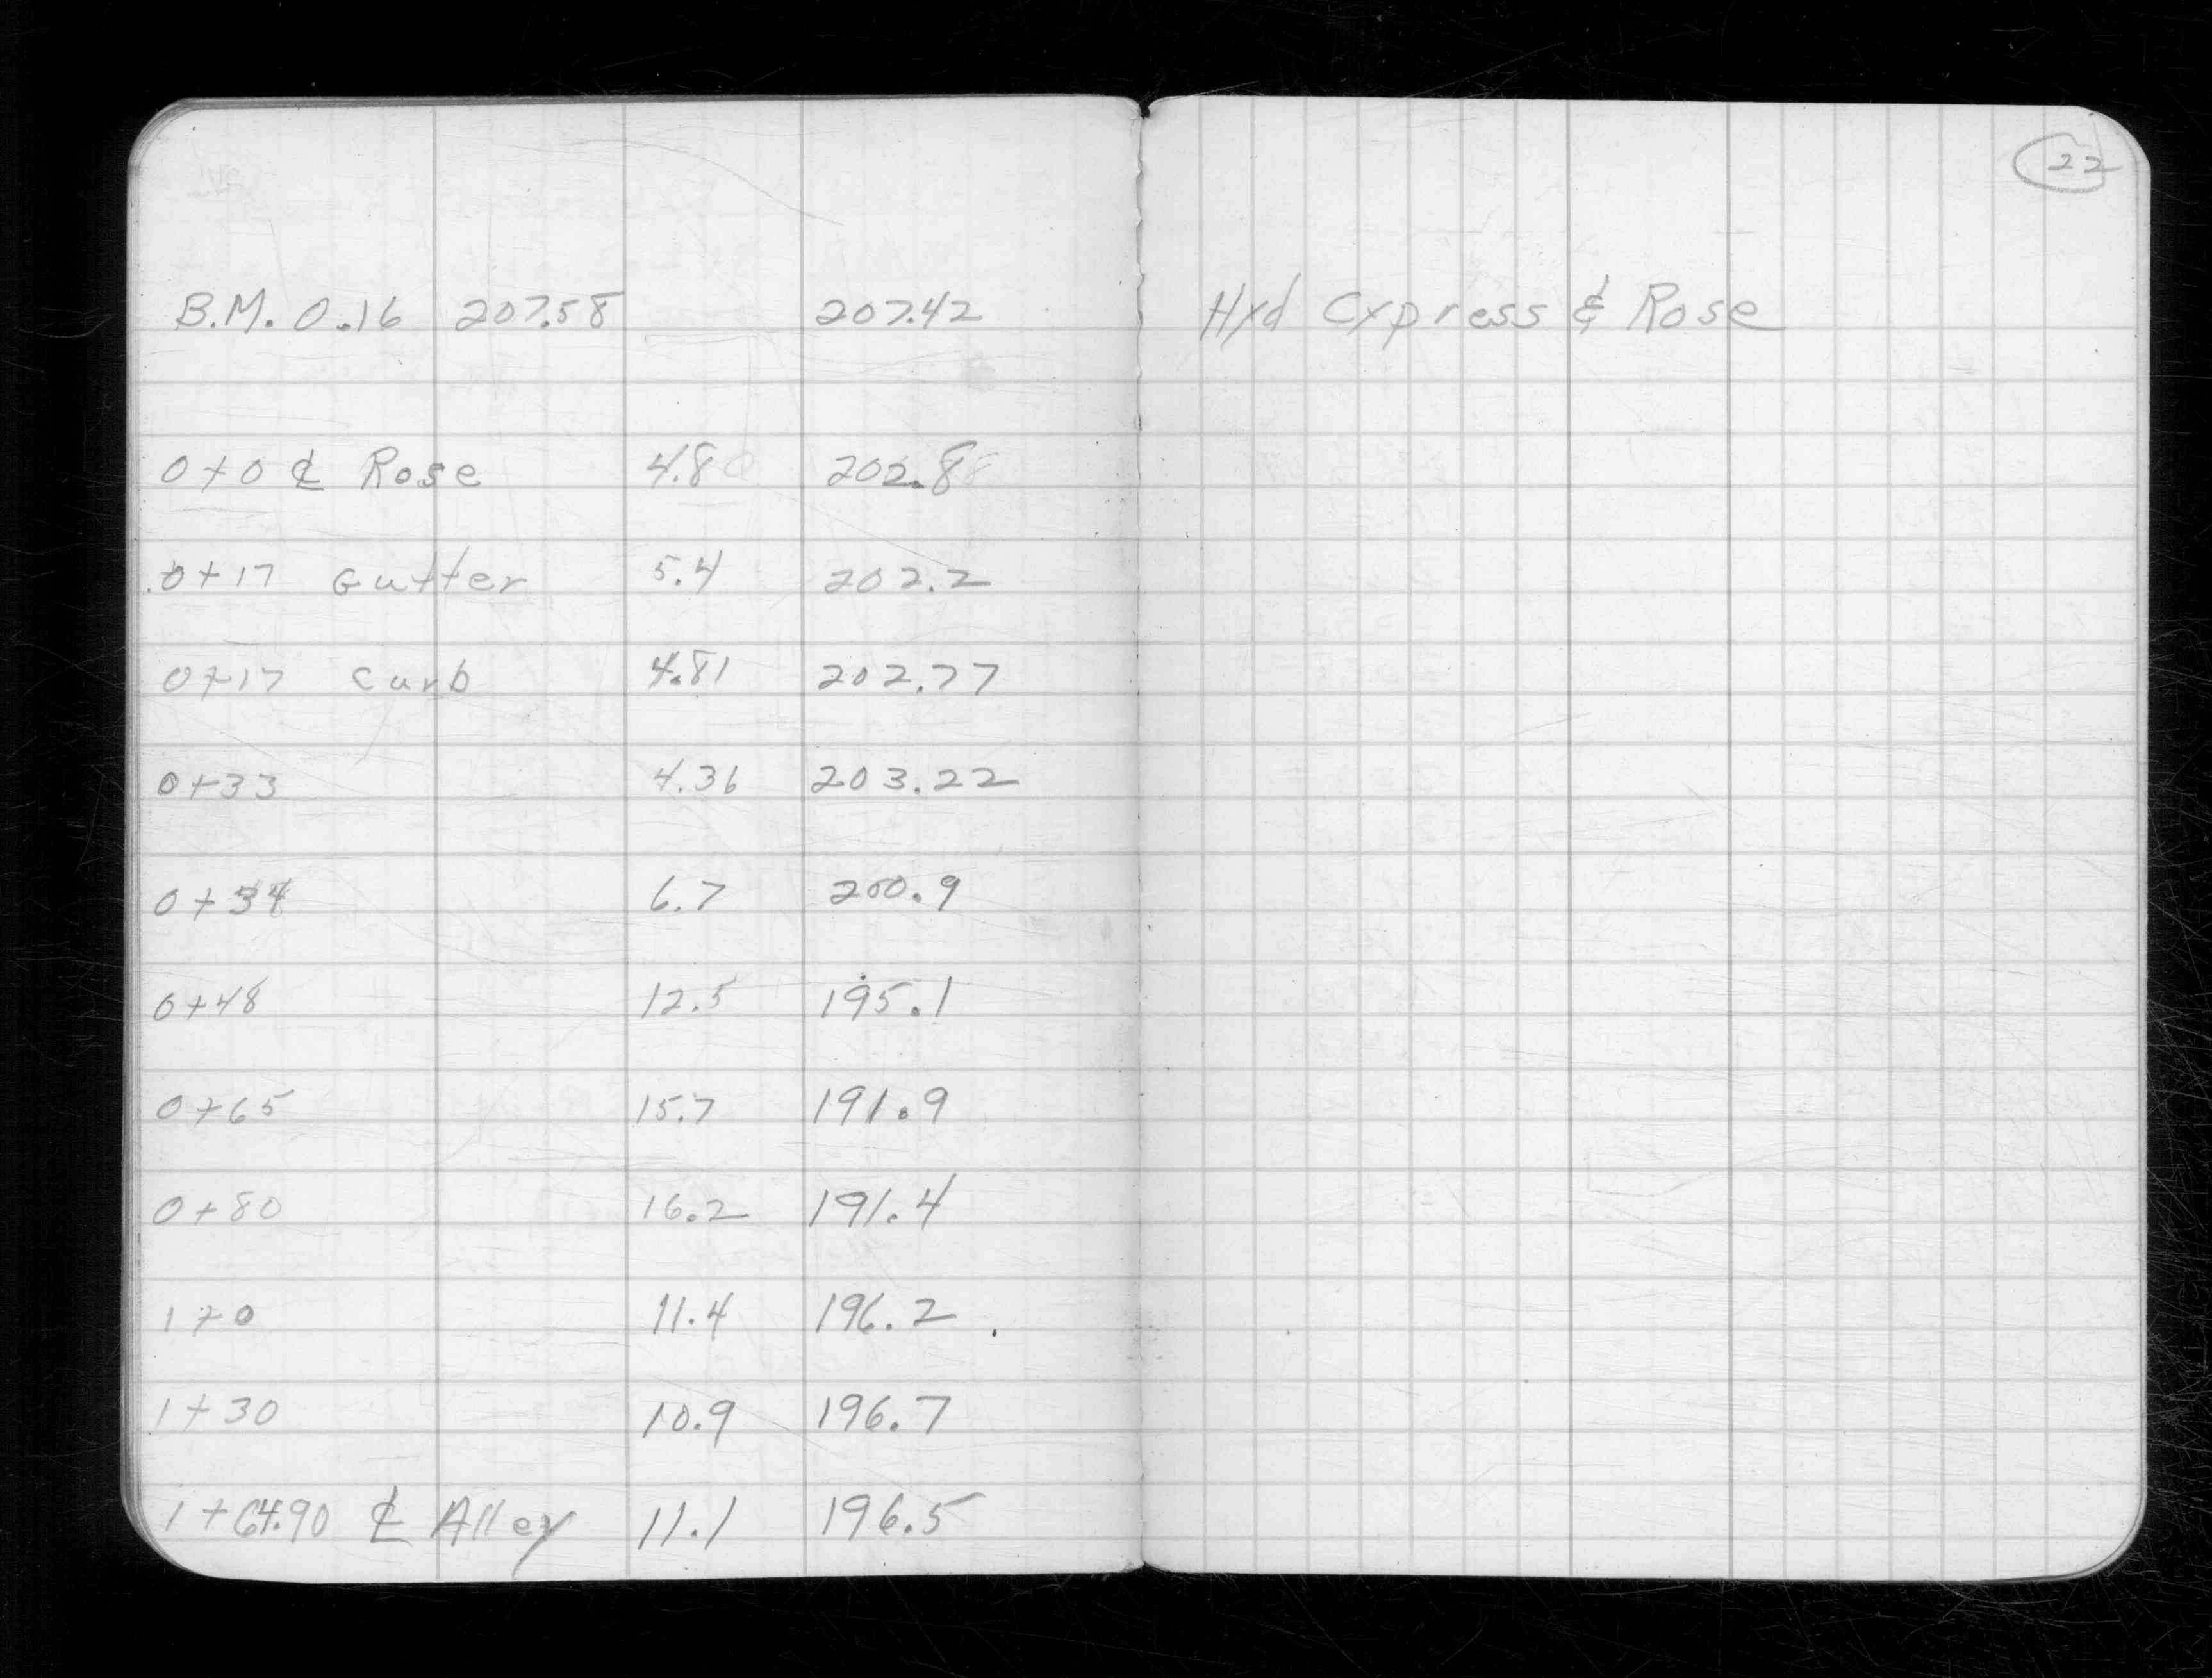 22
B.M. 0.16 207.58 207.42 Hyd Cypress & Rose
0+0 ℄ Rose 4.8 202.8
0+17 Gutter 5.4 202.2
0+17 Curb 4.81 202.77
0+33 4.36 203.22
0+34 6.7 200.9
0+48 12.5 195.1
0+65 15.7 191.9
0+80 16.2 191.4
1+0 11.4 196.2
1+30 10.9 196.7
1+64.90 ℄ Alley 11.1 196.5